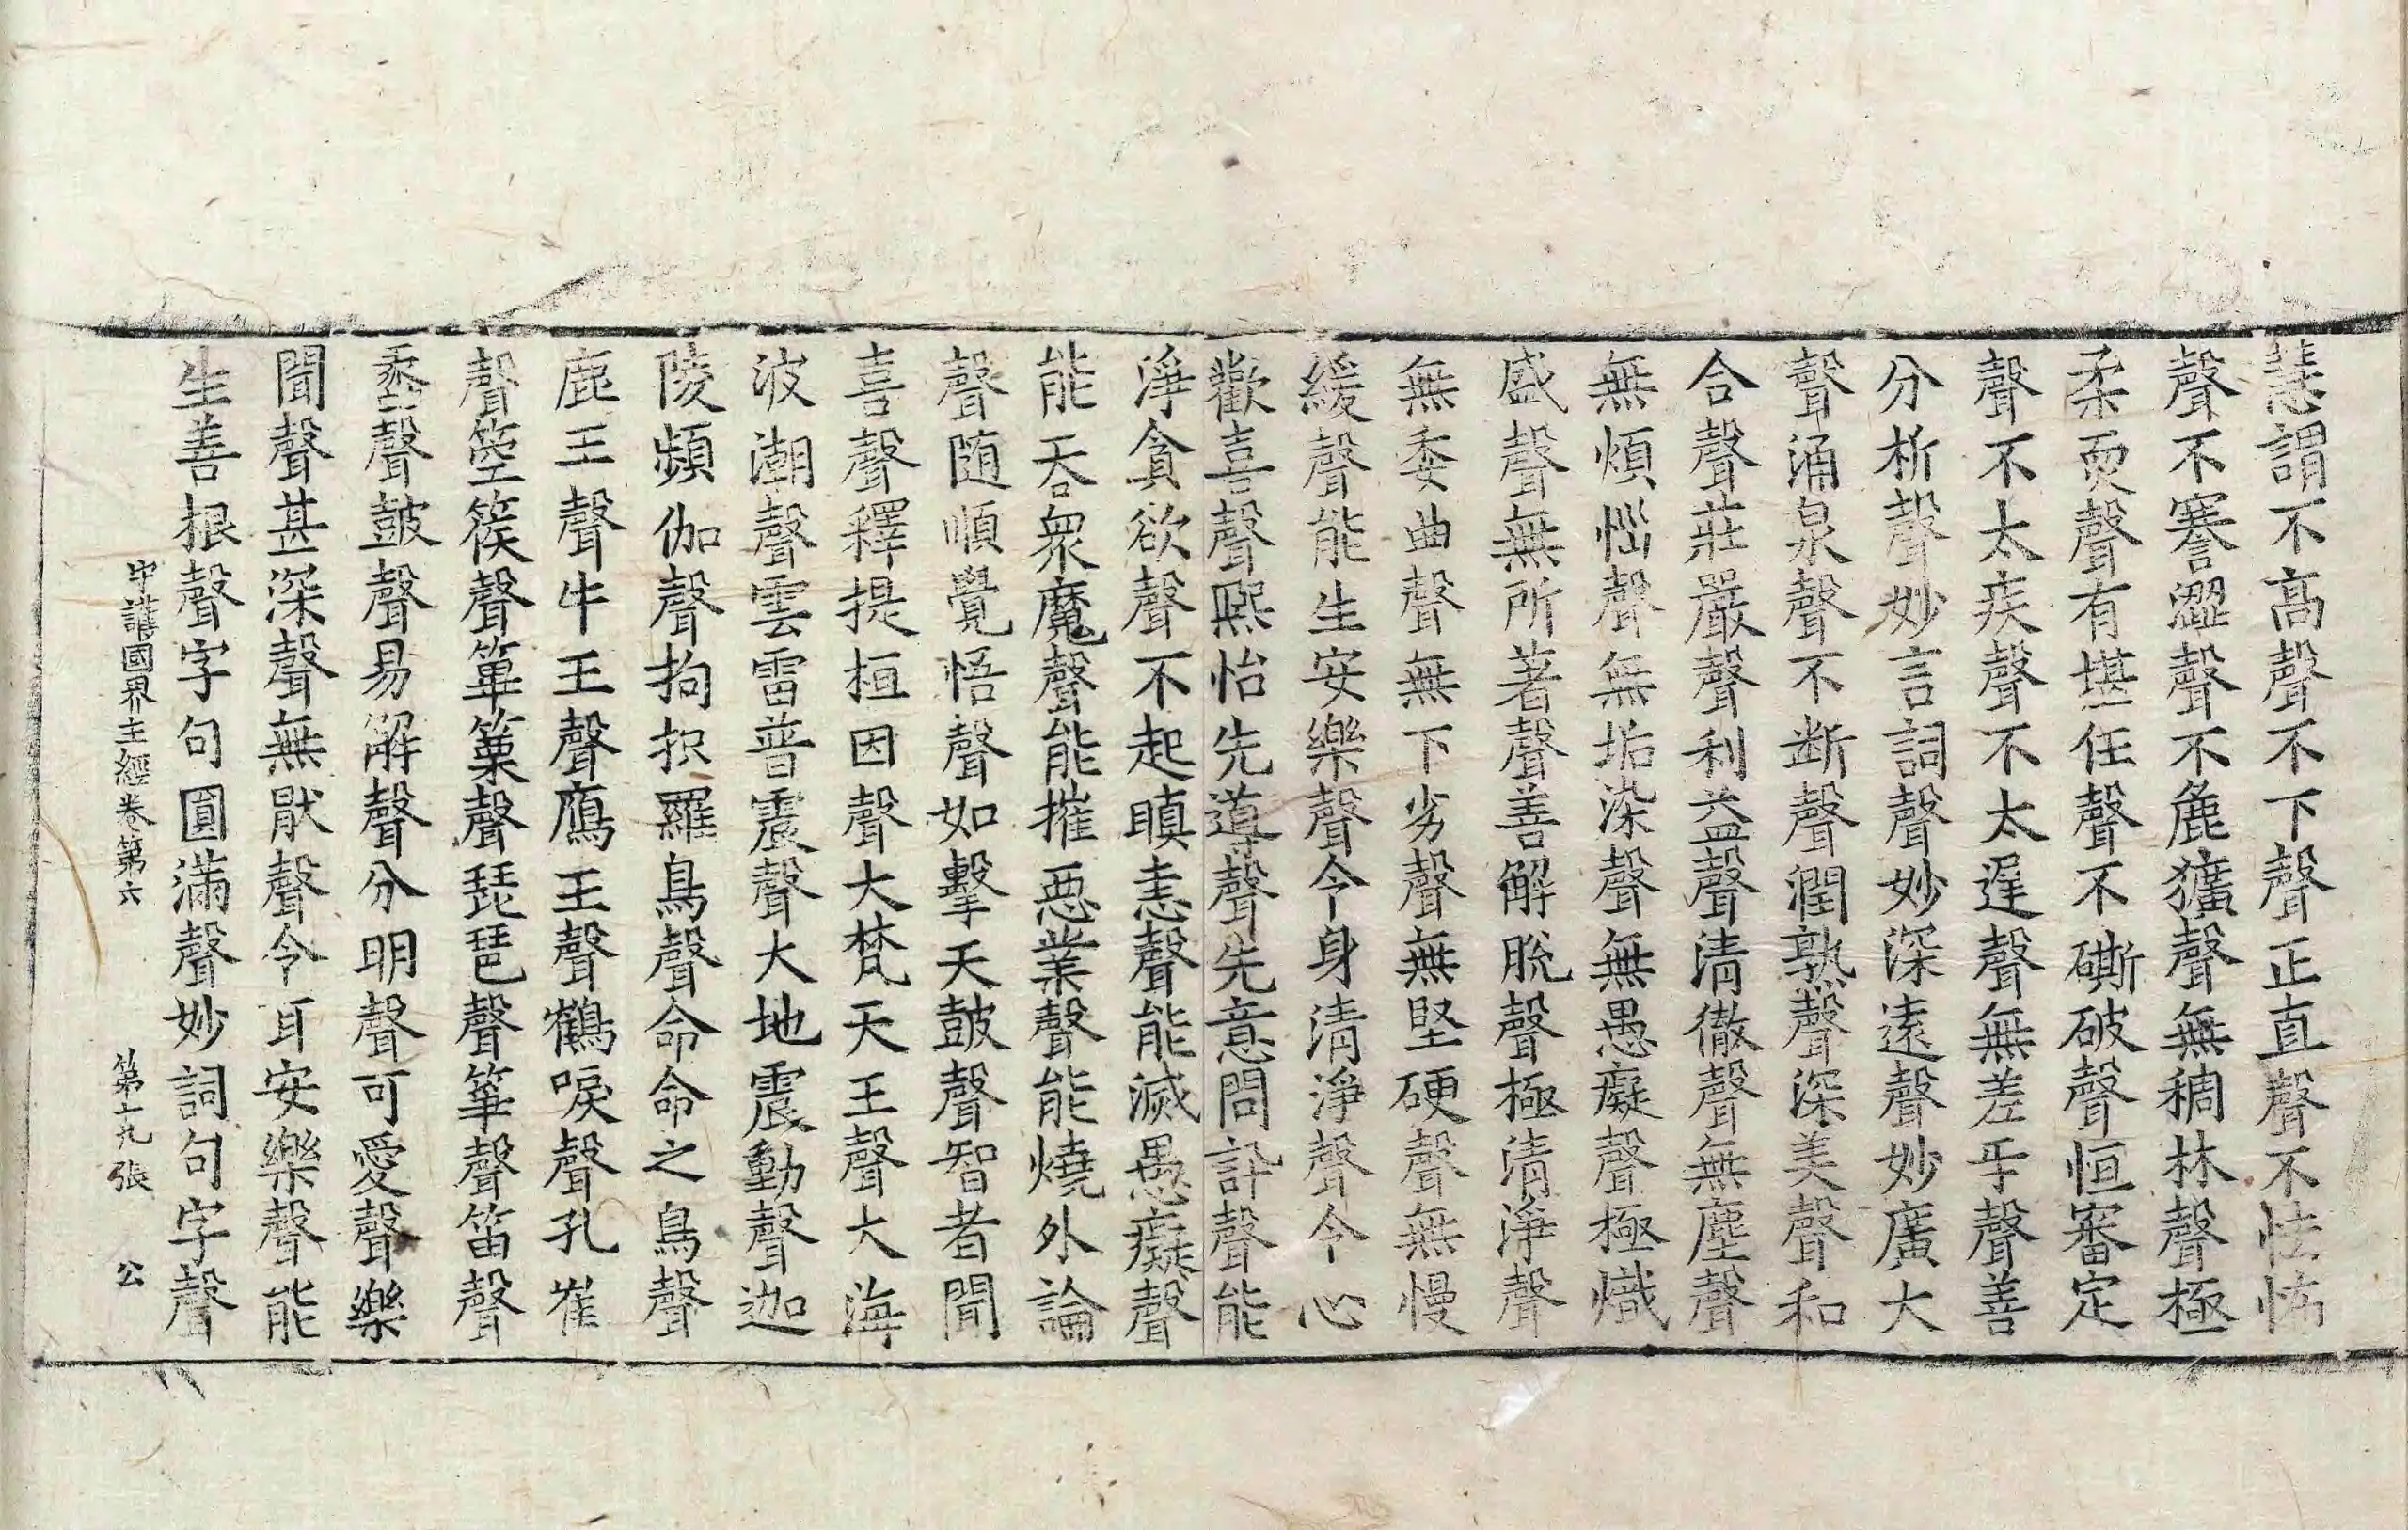 慧謂不高聲不下聲正直聲不怯怖
聲不謇澀聲不麁獷聲無稠林聲極
柔耎聲有堪任聲不嘶破聲恒審定
聲不太疾聲不太遲聲無差乎聲善
分析聲妙言詞聲妙深遠聲妙廣大
聲涌泉聲不断聲潤熟聲深美聲和
合聲莊嚴聲利益聲清徹聲無塵聲
無煩惱聲無垢染聲無愚癡聲極熾
盛聲無所著聲善解脫聲極清淨聲
無委曲聲無下劣聲無堅硬聲無慢
緩聲能生安樂聲令身清淨聲令心
歡喜聲熈怡先導聲先意問訃聲能
淨貪欲聲不起瞋恚聲能滅愚癡聲
能吞衆魔聲能摧惡業聲能燒外論
聲随順覺悟聲如擊天鼓聲智者聞
喜聲釋提桓因聲大梵天王聲大海
波潮聲雲雷普震聲大地震動聲迦
陵頻伽聲拘枳羅鳥聲命命之鳥聲
鹿王聲牛王聲鴈王聲鶴唳聲孔雀
聲箜篌聲篳篥聲琵琶聲箏聲笛聲
蠡聲鼓聲易解聲分明聲可愛聲樂
聞聲甚深聲無猒聲令耳安樂聲能
生善根聲字句圓滿聲妙詞句字聲
守護國界主經卷第六 第十九張 公